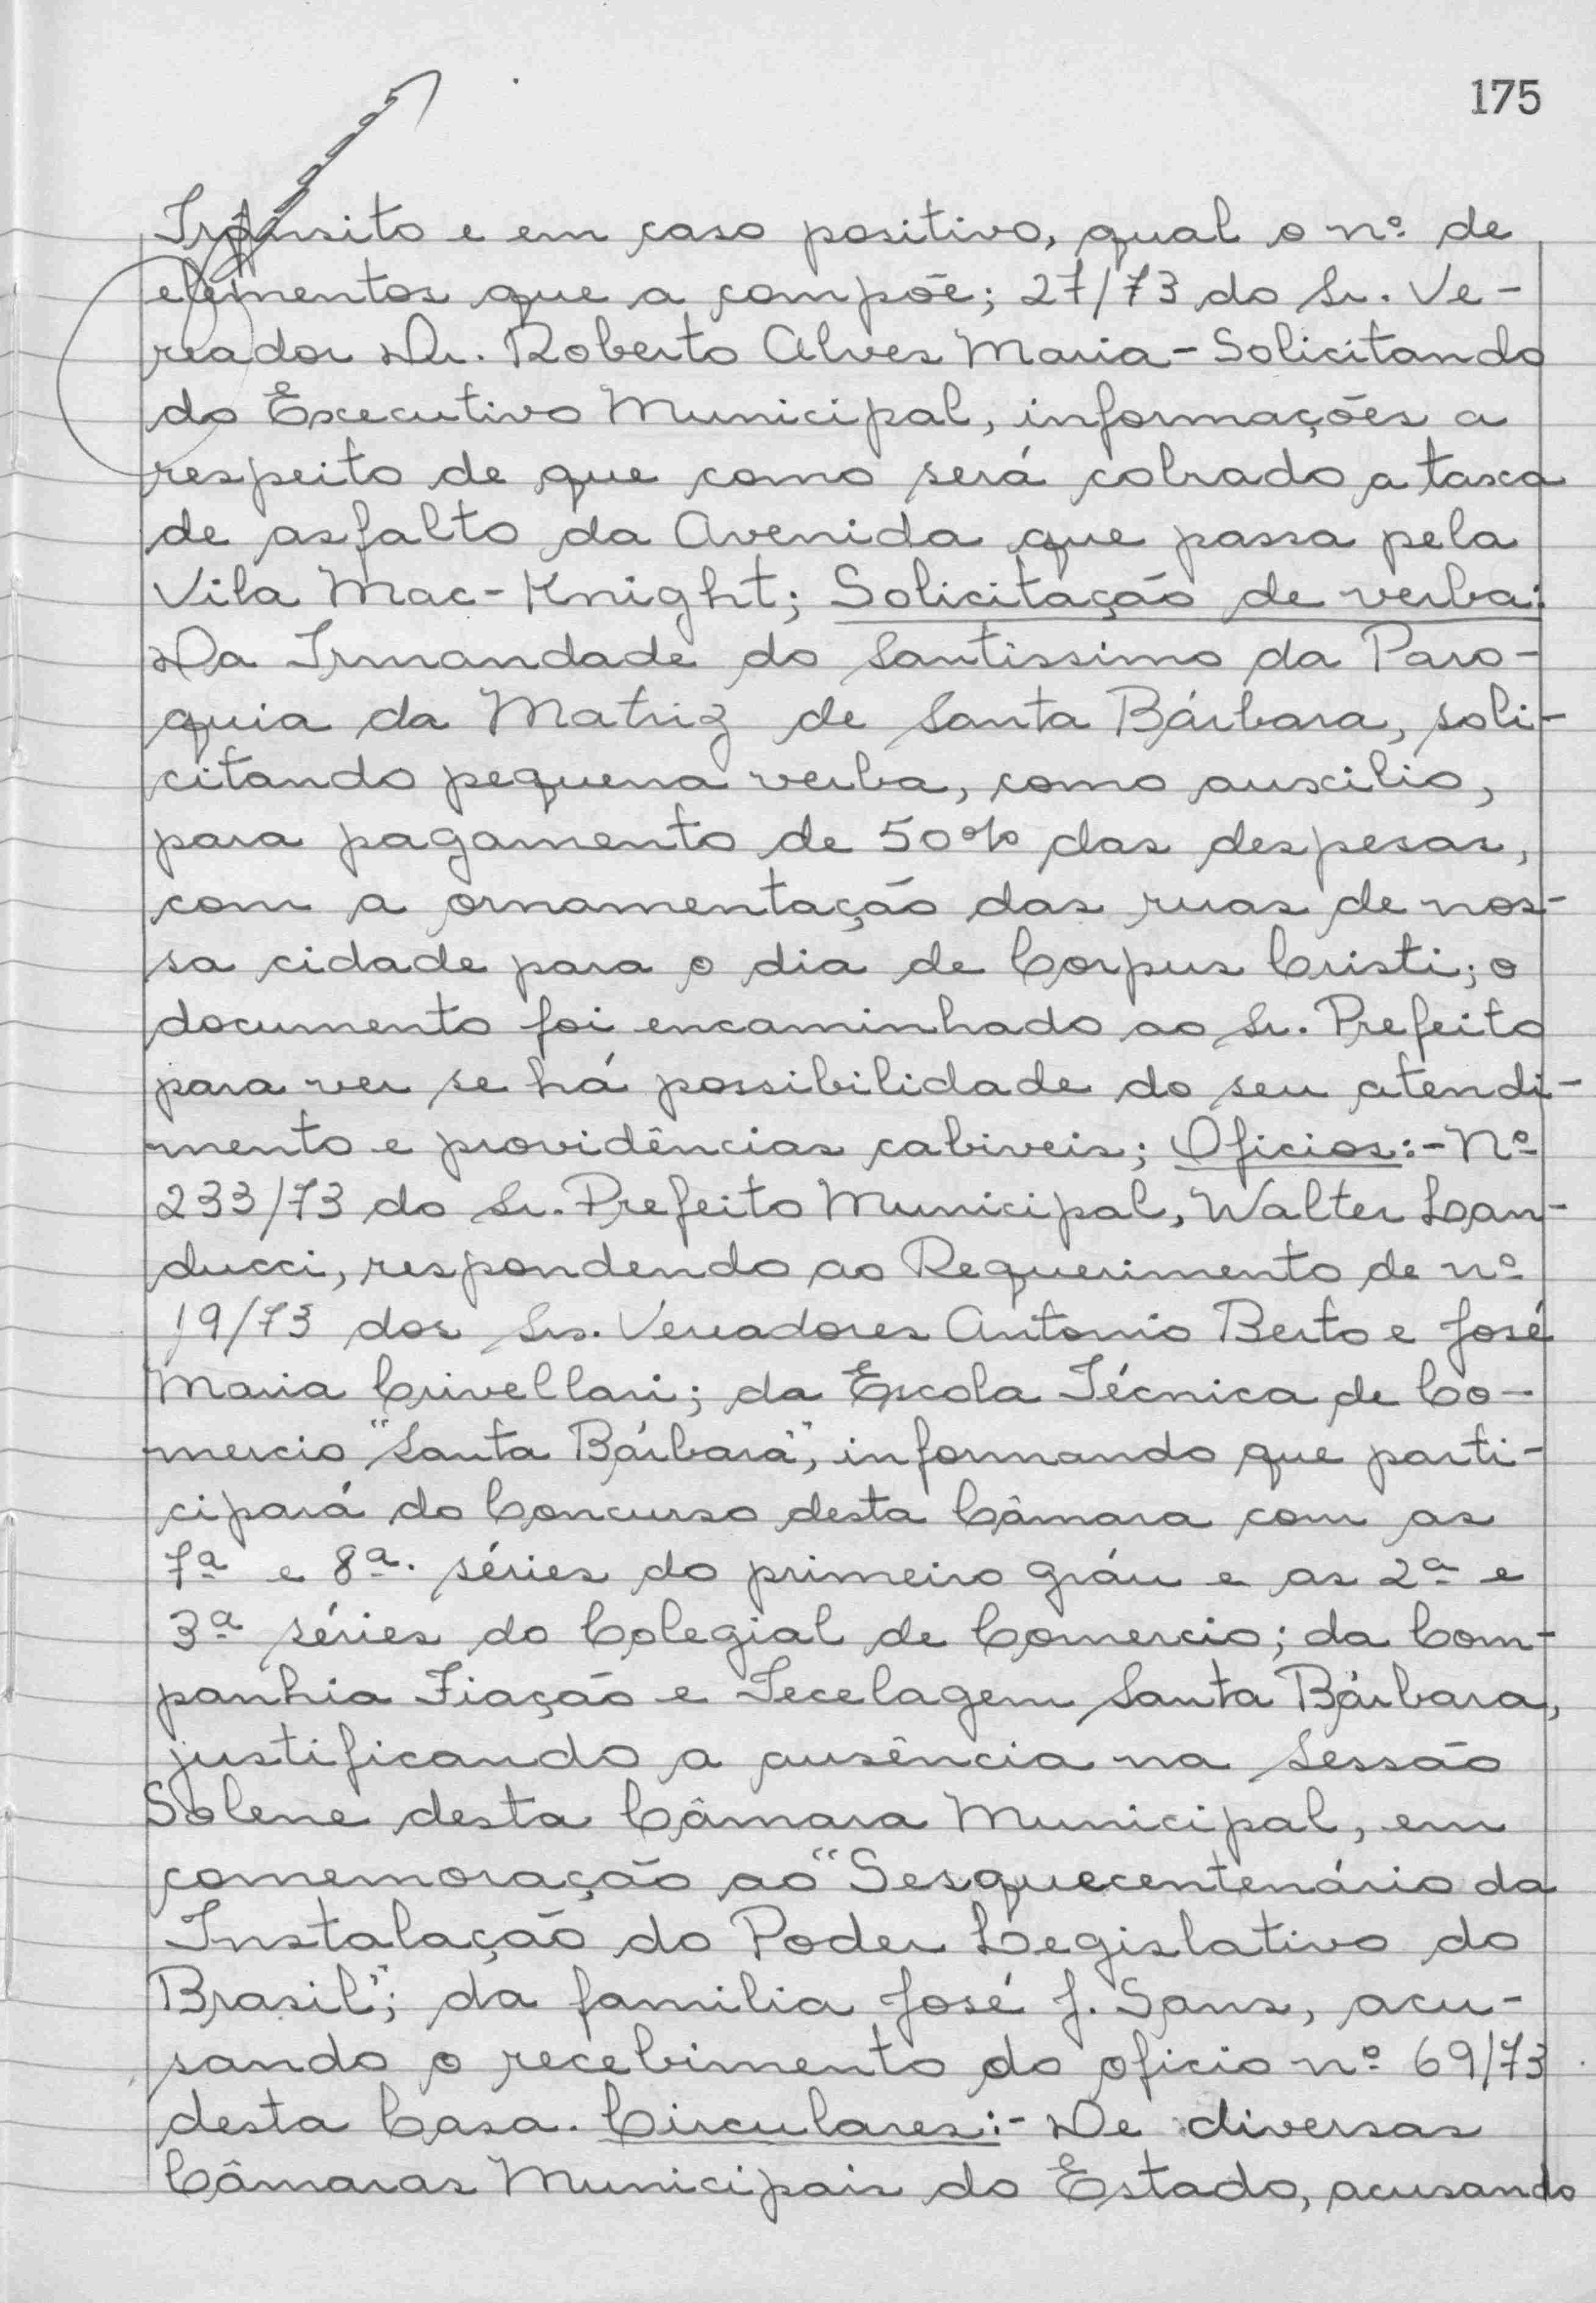 175
Trânsito e em caso positivo, qual o nº de
elementos que a compõe; 27/73 do Sr. Ve-
reador Dr. Roberto Alves Maria - Solicitando
do Executivo Municipal, informações a
respeito de que como será cobrado a taxa
de asfalto da Avenida que passa pela
Vila Mac-Knight; Solicitação de verba:
Da Irmandade do Santissimo da Paro-
quia da Matriz de Santa Bárbara, soli-
citando pequena verba, como auxilio,
para pagamento de 50% das despesas,
com a ornamentação das ruas de nos-
sa cidade para o dia de Corpus Cristi; o
documento foi encaminhado ao Sr. Prefeito
para ver se há possibilidade do seu atendi-
mento e providências cabiveis; Oficios:- Nº
233/73 do Sr. Prefeito Municipal, Walter Lan-
ducci, respondendo ao Requerimento de nº
19/73 dos Srs. Vereadores Antonio Berto e José
Maria Crivellari; da Escola Técnica de Co-
mercio "Santa Bárbara", informando que parti-
cipará do Concurso desta Câmara com as
7ª e 8ª. séries do primeiro gráu e as 2ª e
3ª séries do Colegial de Comercio; da Com-
panhia Fiação e Tecelagem Santa Bárbara,
justificando a ausência na Sessão
Solene desta Câmara Municipal, em
comemoração ao "Sesquecentenário da
Instalação do Poder Legislativo do
Brasil"; da familia José J. Sans, acu-
sando o recebimento do oficio nº 69/73
desta Casa. Circulares:- De diversas
Câmaras Municipais do Estado, acusando